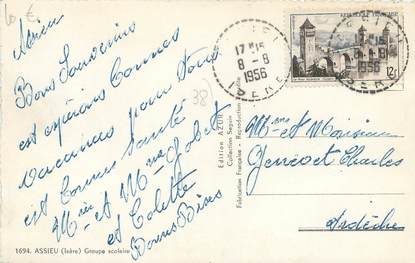 10 €
Bons Souvenirs
et espérons bonnes
vacances pour tous
et bonne santé
Mr et Mme Jobet
et Colette
Bons Bises
38
Edition AZUR
Collection Seguin
Fabrication Française - Reproduction
17 H 15
8 - 8
1956
ISERE
POSTES
12F
Mme et Monsieur
et Charles
Ardèche
1694. ASSIEU (Isère) Groupe scolaire